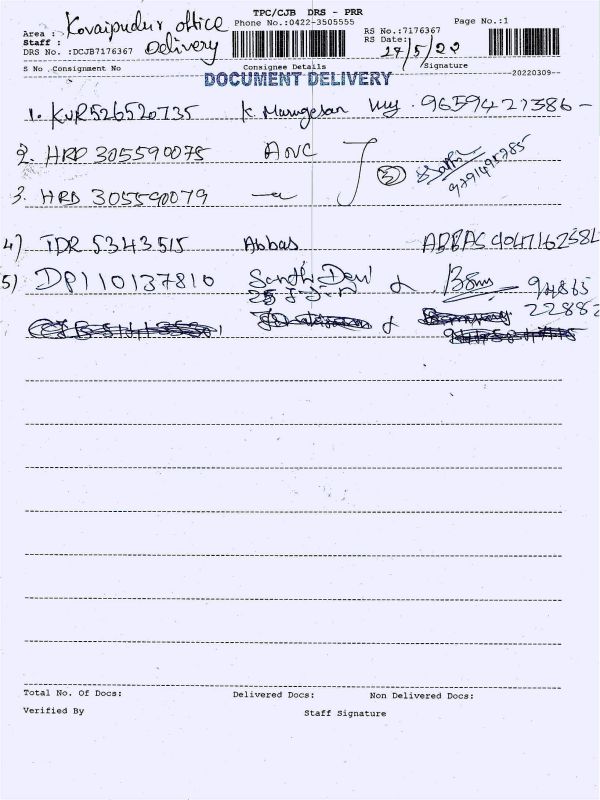 TPC/CJB DRS - PRR
Area : Kovaipudur office
Phone No.:0422-3505555
RS No.:7176367
Page No.:1
Staff : Delivery
RS Date: 27/5/22
DRS No. :DCJB7176367
/Signature
S No Consignment No Consignee Details --20220309--
DOCUMENT DELIVERY
1. KVR526520735 K Murugesan 9659427386
2. HRD 305590075 AVC
3. HRD 305590079
4) TDR 5343515 Abbas ABBAS
5) DP110137810 Senthil Devi 94865
22882
Total No. Of Docs: Delivered Docs: Non Delivered Docs:
Verified By Staff Signature